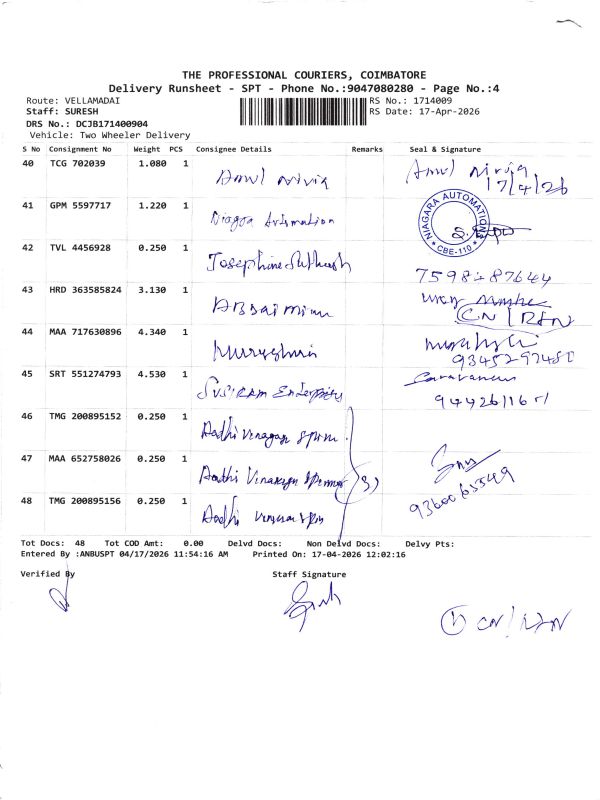 THE PROFESSIONAL COURIERS, COIMBATORE
Delivery Runsheet - SPT - Phone No.:9047080280 - Page No.:4
Route: VELLAMADAI
RS No.: 1714009
Staff: SURESH
RS Date: 17-Apr-2026
DRS No.: DCJB171400904
Vehicle: Two Wheeler Delivery
S No Consignment No Weight PCS Consignee Details Remarks Seal & Signature
40 TCG 702039 1.080 1
17/4/26
41 GPM 5597717 1.220 1 Niagra Automation
NIAGARA AUTOMATIONS * CBE-110 *
42 TVL 4456928 0.250 1 Josephine
43 HRD 363585824 3.130 1
CN / RTN
44 MAA 717630896 4.340 1
45 SRT 551274793 4.530 1 Enterprises
46 TMG 200895152 0.250 1 Aadhi Vinayaga
47 MAA 652758026 0.250 1 Aadhi Vinayaga (3)
48 TMG 200895156 0.250 1 Aadhi
Tot Docs: 48 Tot COD Amt: 0.00 Delvd Docs: Non Delvd Docs: Delvy Pts:
Entered By :ANBUSPT 04/17/2026 11:54:16 AM Printed On: 17-04-2026 12:02:16
Verified By Staff Signature
① CN / RTN